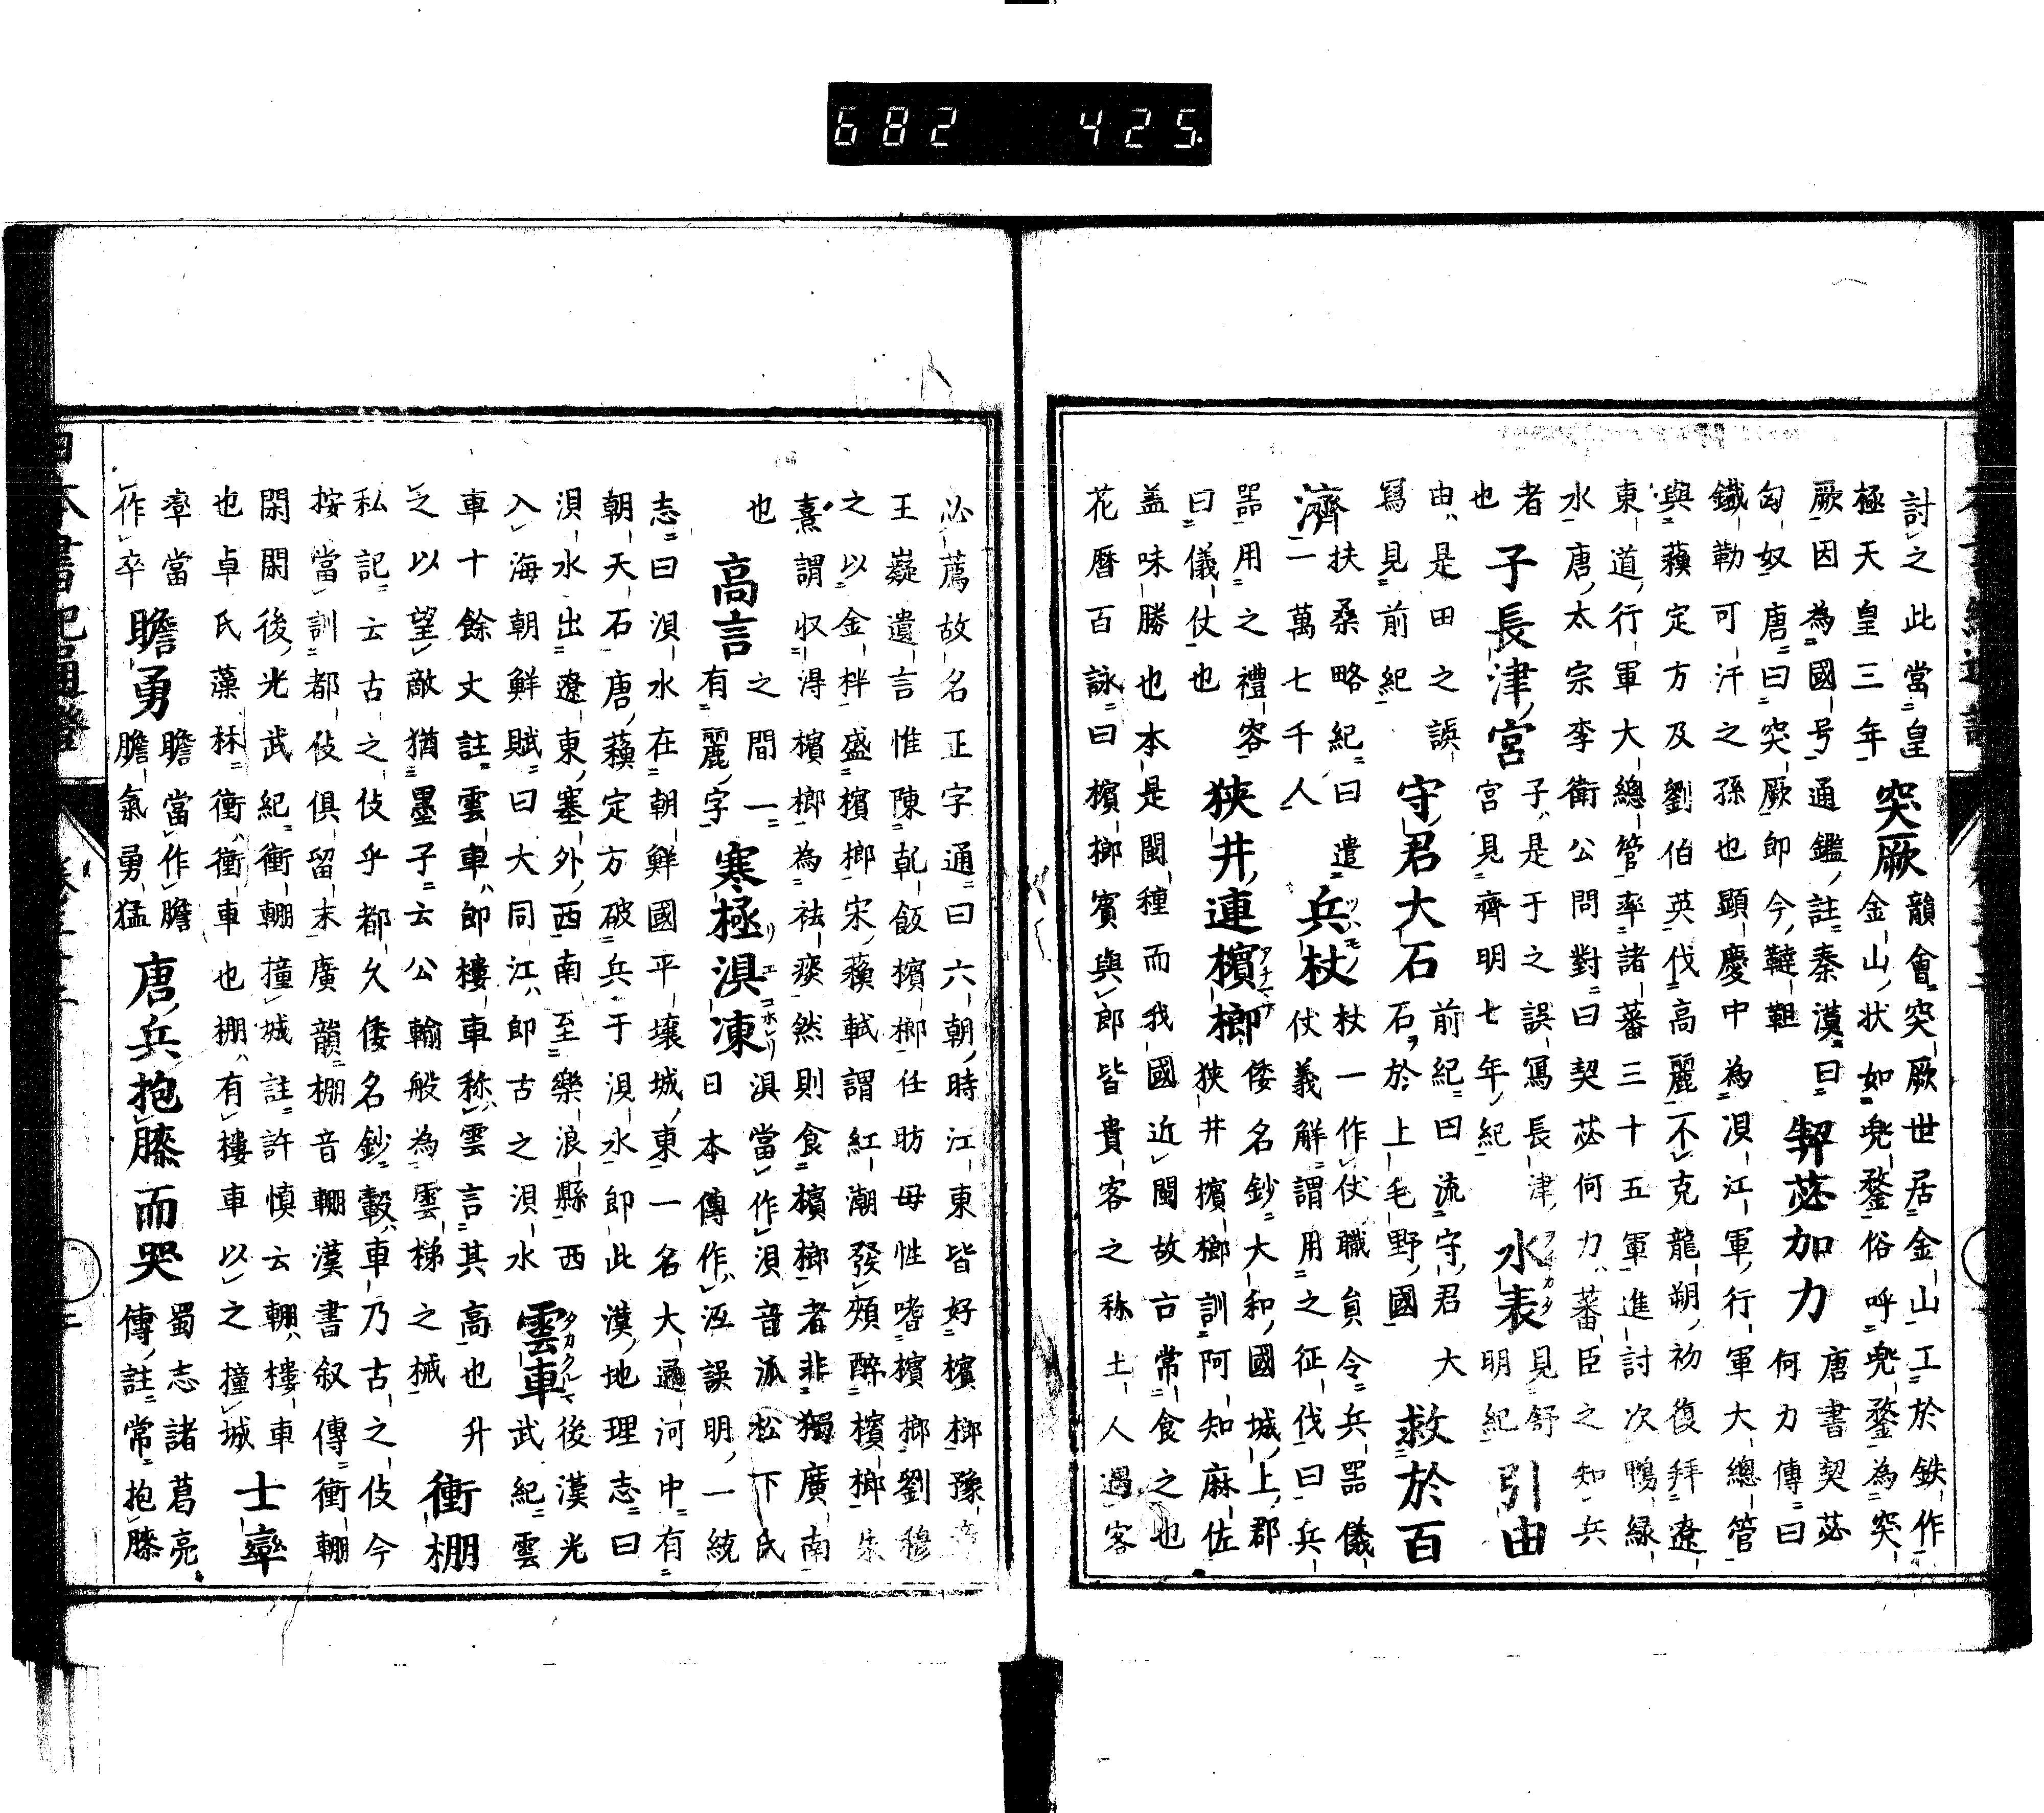 討之此當皇
極天皇三年
突厥
韻會突厥世居金山工於鉄作
金山状如兜鍪俗呼兜鍪為突
厥因為國号通鑑註秦漢曰
匈奴唐曰突厥即今韃靼
契苾加力
唐書契苾
何力傳曰
鐵勒可汗之孫也顕慶中為浿江軍行軍大總管
與蘓定方及劉伯英伐高麗不克龍朔初復拜遼
東道行軍大總管率諸蕃三十五軍進討次鴨緑
水唐太宗李衛公問對曰契苾何力蕃臣之知兵
者
也
子長津宮
子是于之誤冩長津
宮見齊明七年紀
水表
フカタ
見舒
明紀
引由
由是田之誤
冩見前紀
守君大石
前紀曰流守君大
石於上毛野國
救於百
濟
扶桑略紀曰遣
一萬七千人
兵杖
ツハモノ
杖一作仗職員令兵器儀
仗義解謂用之征伐曰兵
器用之禮容
曰儀仗也
狭井連檳榔
アチマサ
倭名鈔大和國城上郡
狭井檳榔訓阿知麻佐
盖味勝也本是閩種而我國近閩故亡常食之也
花暦百詠曰檳榔賓與郎皆貴客之称土人過客
必薦故名正字通曰六朝時江東皆好檳榔豫章
王嶷遺言惟陳乹飯檳榔任昉母性嗜檳榔劉穆
之以金柈盛檳榔宋蘓軾謂紅潮發頰醉檳榔朱
熹謂収得檳榔為袪瘴然則食檳榔者非獨廣南
也
高言
之間一
有麗字
寒極浿凍
リエコホレリ
浿當作浿音派松下氏
日本傳作沍誤明一統
志曰浿水在朝鮮國平壤城東一名大通河中有
朝天石唐蘓定方破兵于浿水即此漢地理志曰
浿水出遼東塞外西南至樂浪縣西
入海朝鮮賦曰大同江即古之浿水
雲車
タカクルマ
後漢光
武紀雲
車十餘丈註雲車即樓車称雲言其高也升
之以望敵猶墨子云公輸般為雲梯之械
衝棚
私記云古之伎乎都久倭名鈔轂車乃古之伎今
按當訓都伎俱留末廣韻棚音輣漢書叙傳衝輣
閑閑後光武紀衝輣撞城註許慎云輣樓車
也卓氏藻林衝衝車也棚有樓車以之撞城
士牽
牽當
作卒
瞻勇
瞻當作膽
膽氣勇猛
唐兵抱膝而哭
蜀志諸葛亮
傳註常抱膝
日本書紀通證
682 425